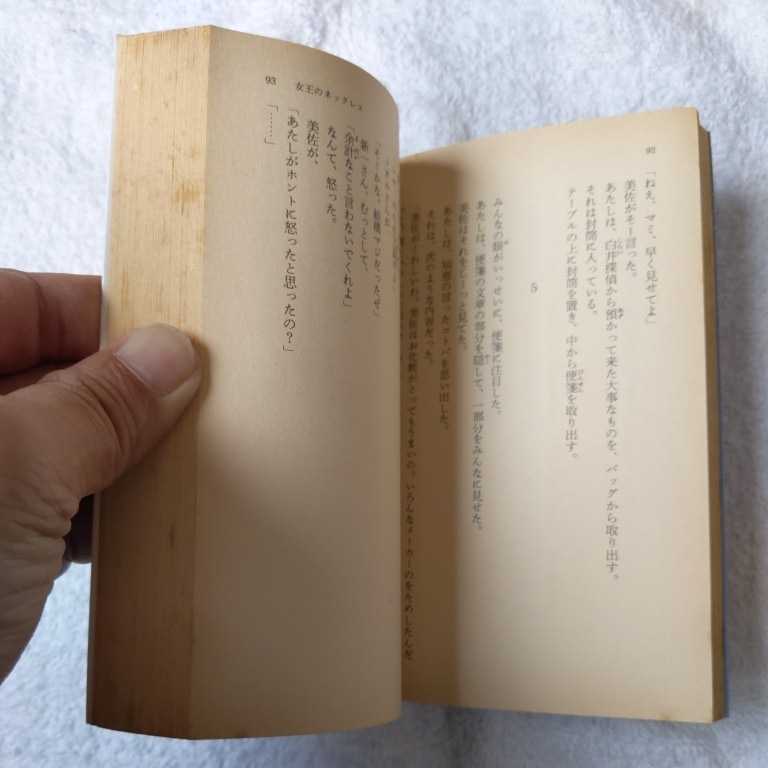 「ねえ、マミ、早く見せてよ」
美佐がそー言った。
あたしは、白井探偵から預かって来た大事なものを、バッグから取り出す。
それは封筒に入っている。
テーブルの上に封筒を置き、中から便箋を取り出す。
5
みんなの眼がいっせいに、便箋に注目した。
あたしは、便箋の文章の部分を隠して、一部分をみんなに見せた。
美佐はそれをじーっと見てた。
あたしは、の言ったコトバを思い出した。
それは、次のような内容だった。
美佐がくわしいわ。美佐はお化粧がとってもうまいの。いろんなメーカーのをためしたんだ
93 女王のネックレス
結構マジだったぜ」
新一さん、むっとして、
「余計なこと言わないでくれよ」
なんて、怒った。
美佐が、
「あたしがホントに怒ったと思ったの？」
「……」